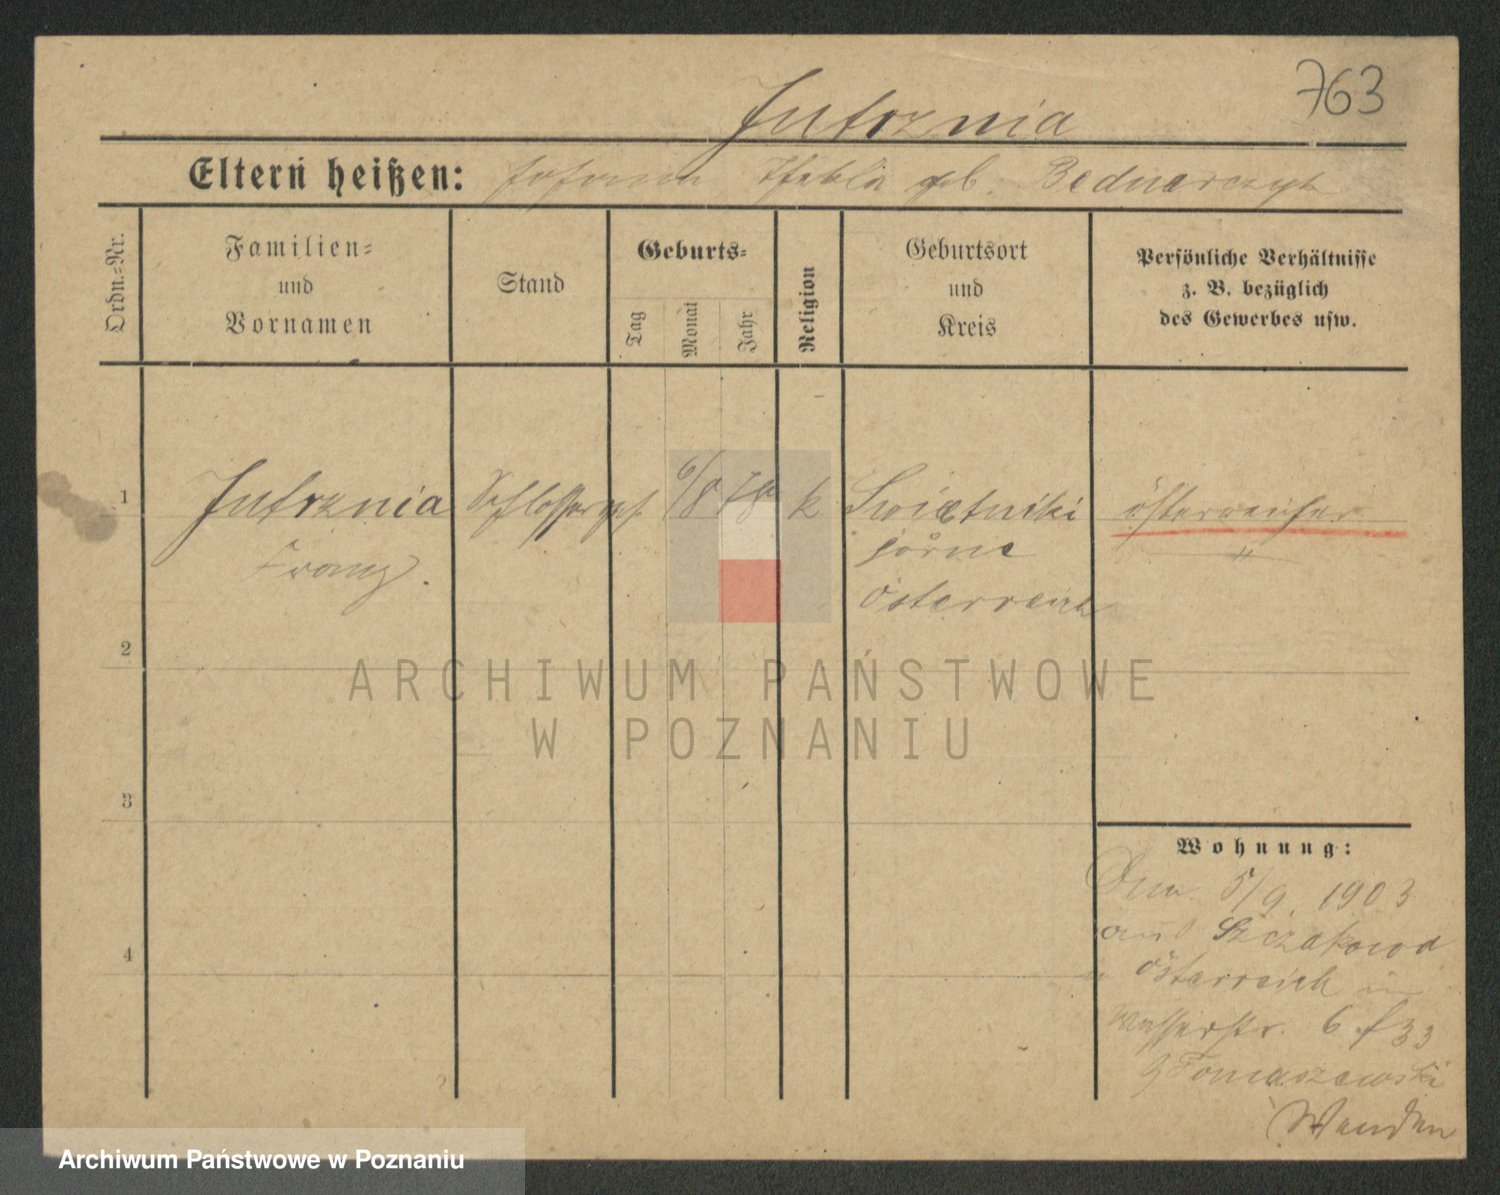 763
Jutrznia
Eltern heißen: Johann Thekla geb. Bednarczyk
Ordn.-Nr.
Familien-
und
Vornamen
Stand
Geburts-
Tag
Monat
Jahr
Religion
Geburtsort
und
Kreis
Persönliche Verhältnisse
z. B. bezüglich
des Gewerbes usw.
1 Jutrznia Schlosserges. 6/8 78 k Swiętniki österreicher
Franz. górne "
Österreich
2
3
4
Wohnung:
5/9 1903
aus Szczakowa
Österreich in
Wasserstr. 6
Tomaszewski
Wenden
ARCHIWUM PAŃSTWOWE
W POZNANIU
Archiwum Państwowe w Poznaniu